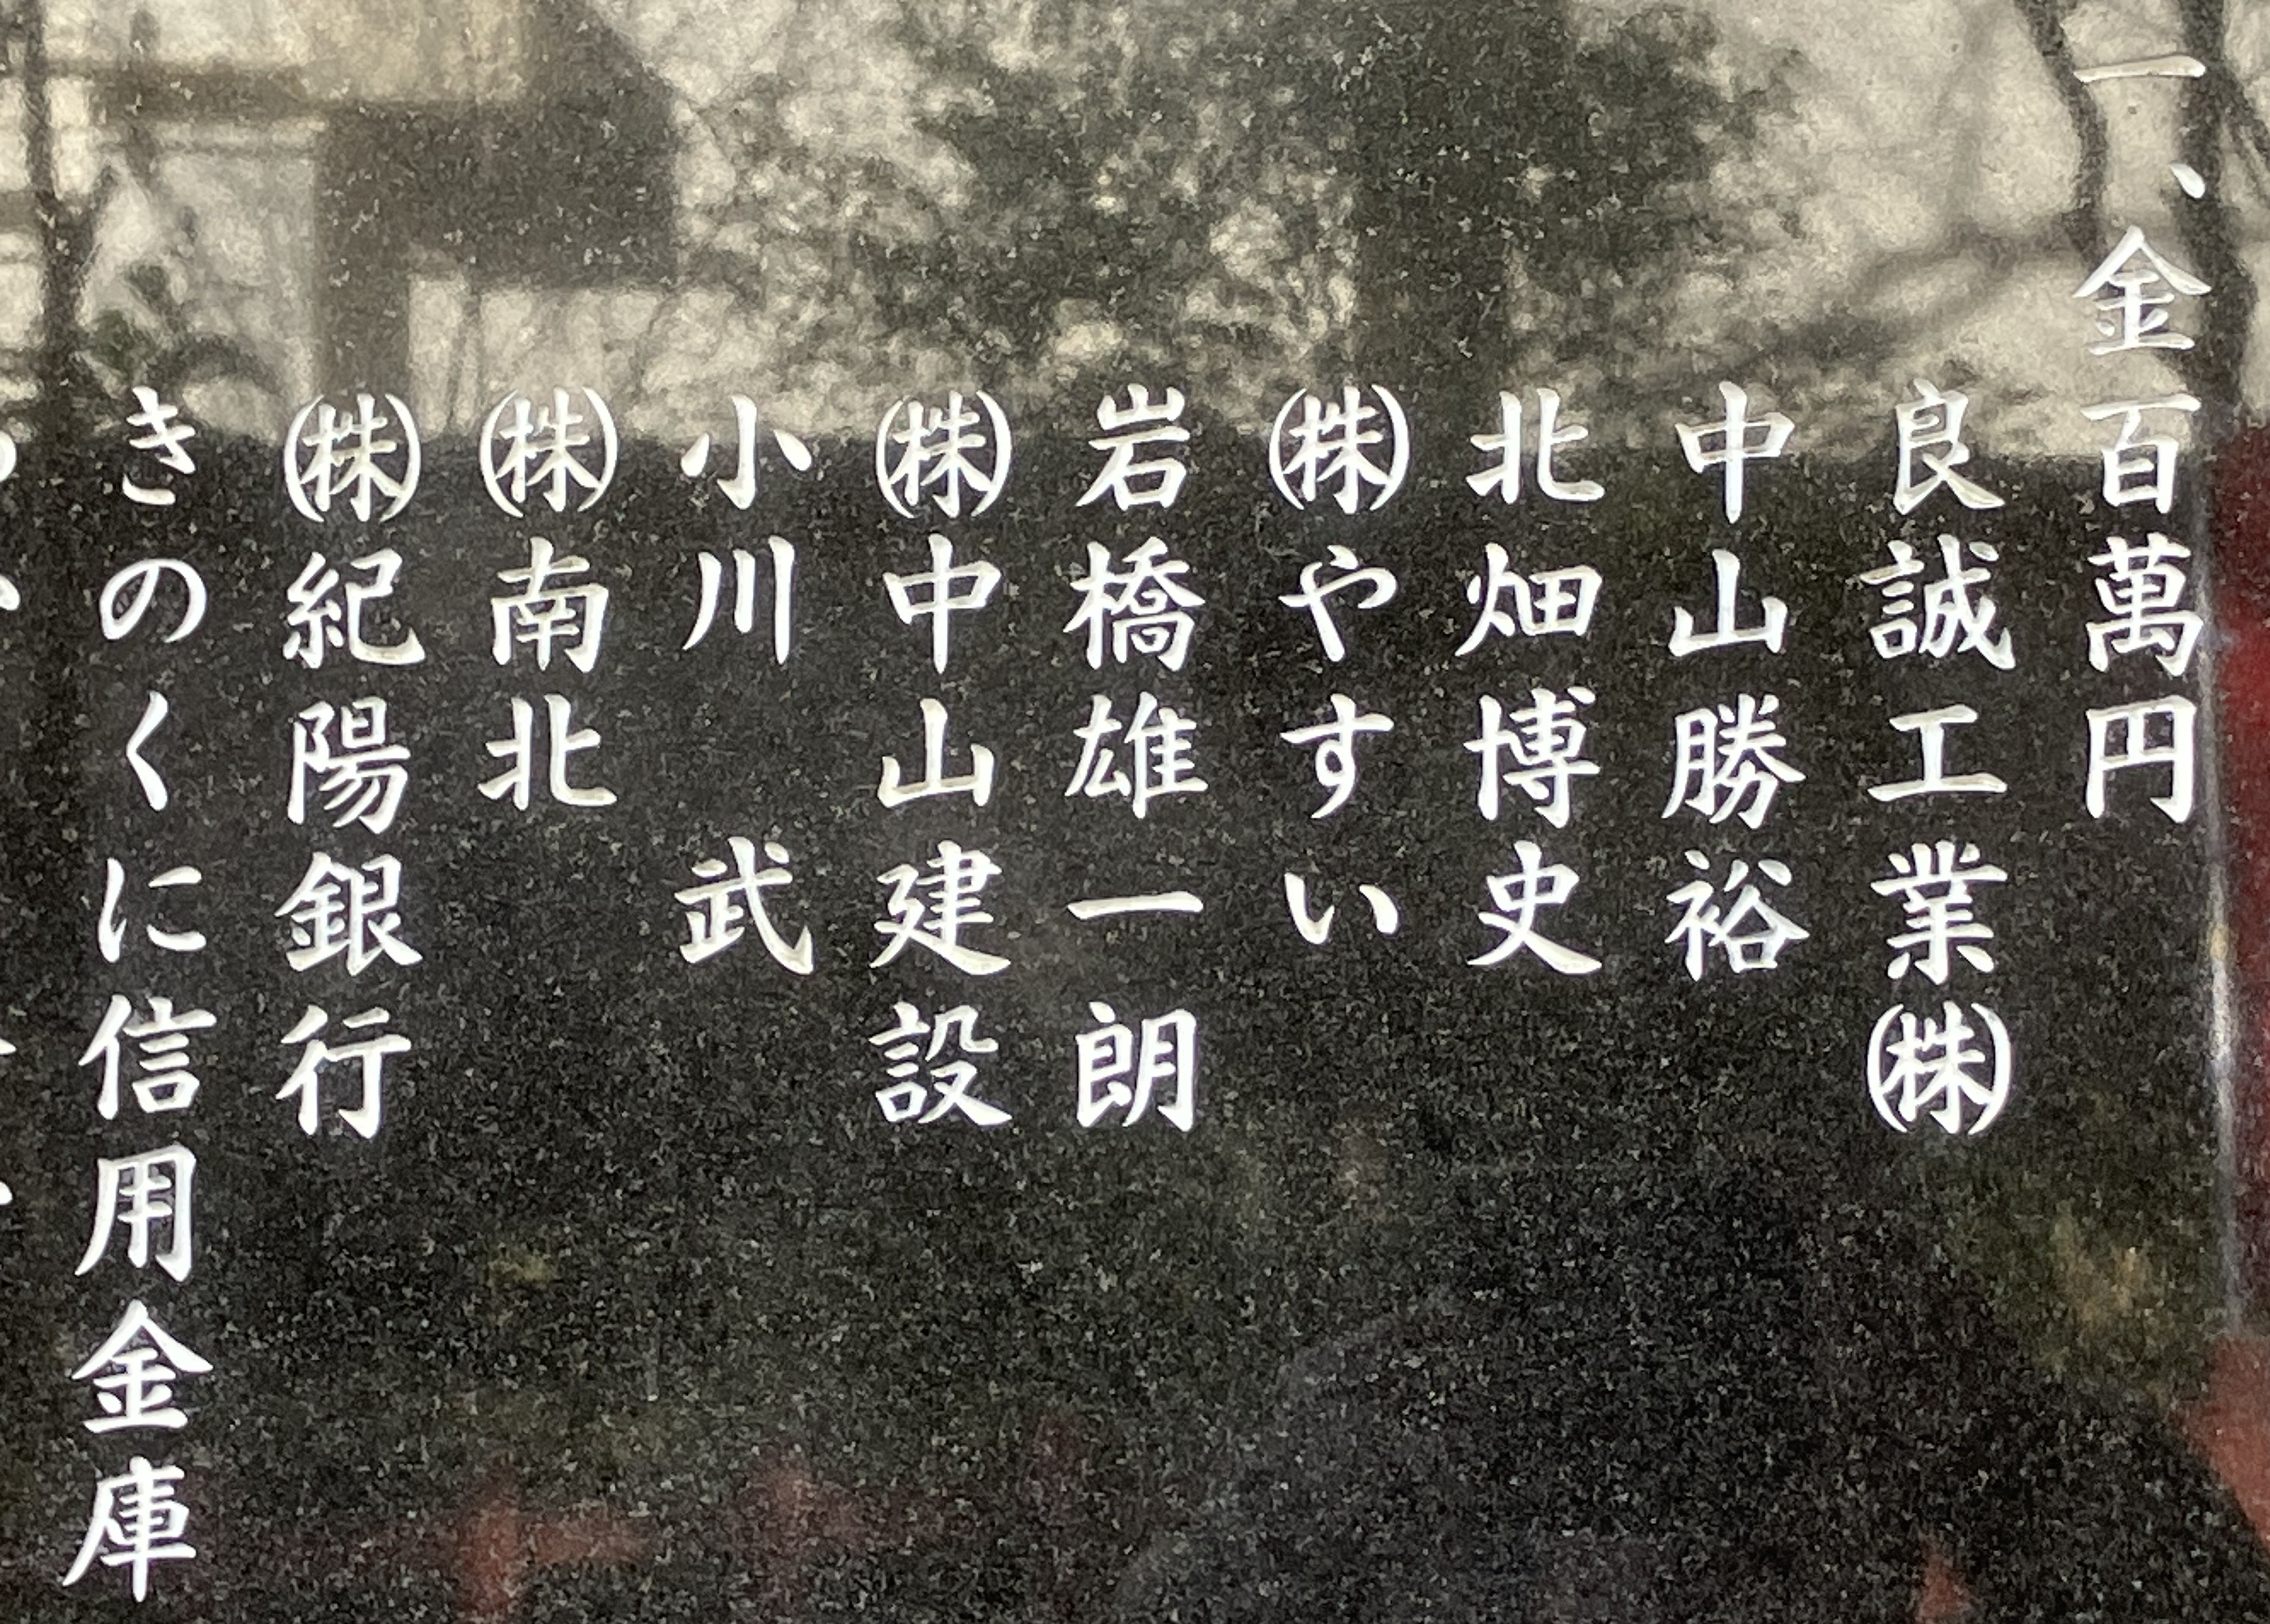 一、金百萬円
良誠工業㈱
中山勝裕
北畑博史
㈱やすい
岩橋雄一朗
㈱中山建設
小川　武
㈱南北
㈱紀陽銀行
きのくに信用金庫